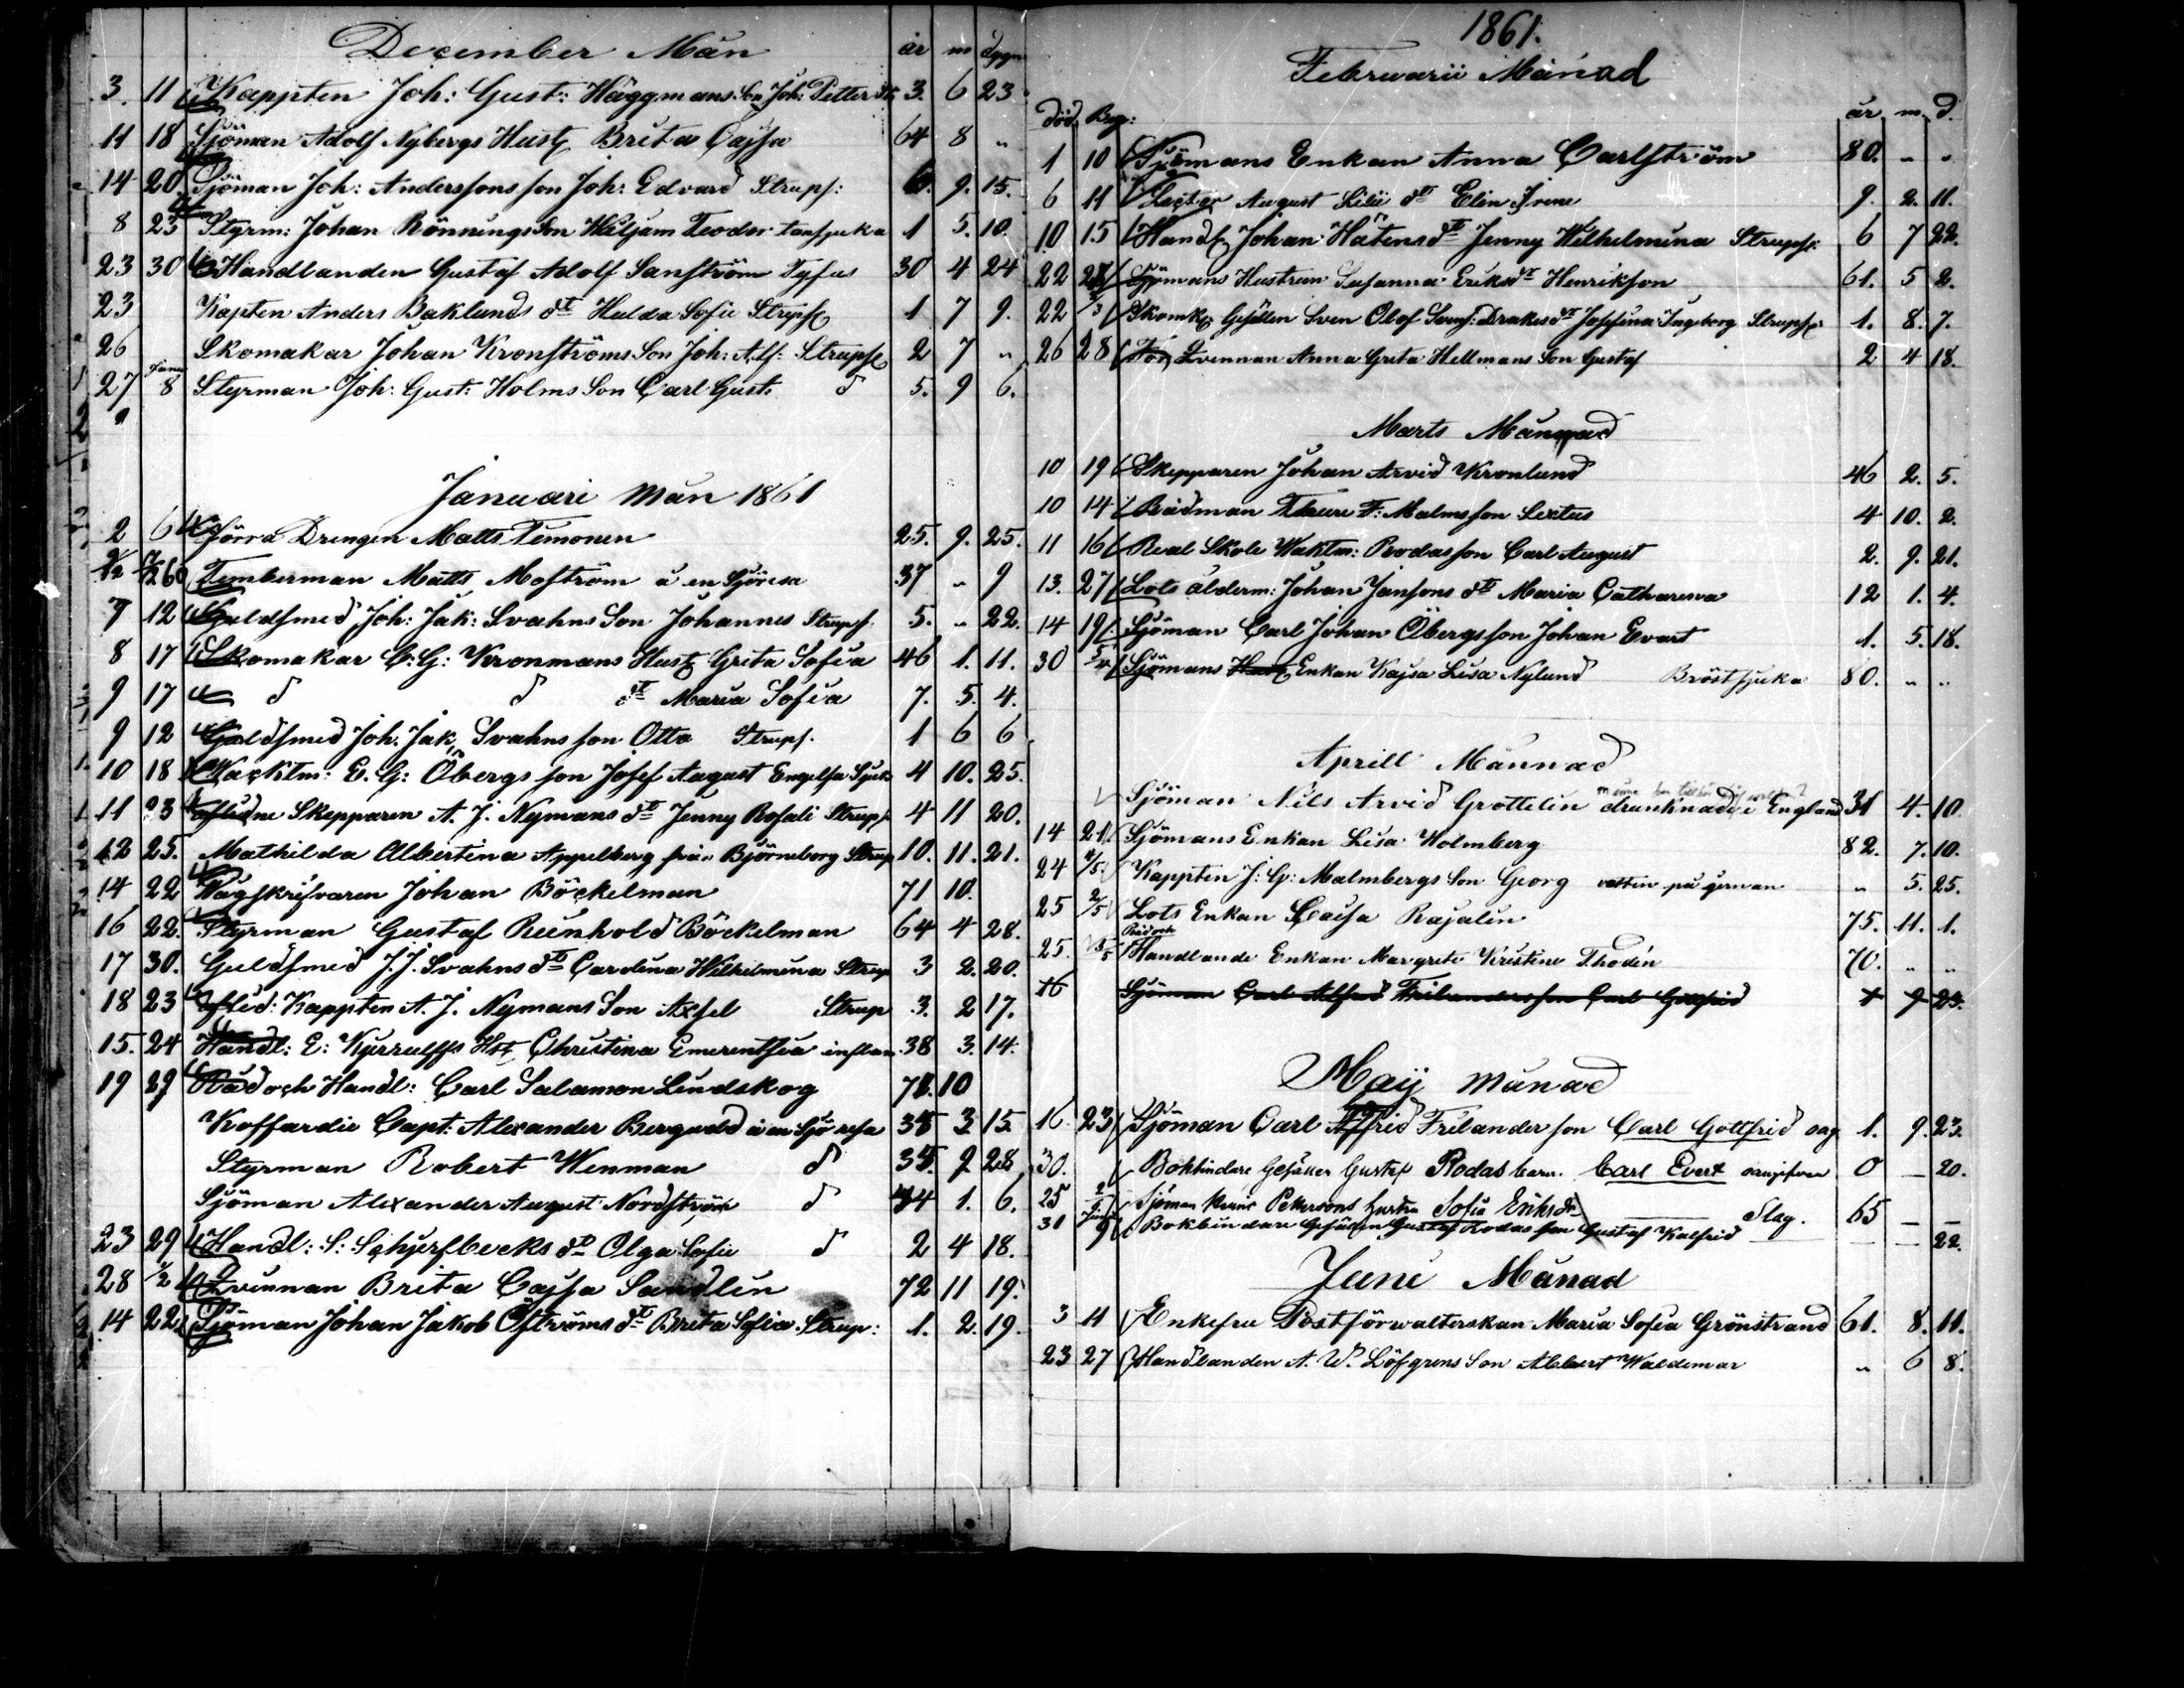 December Mån år m dygn
3. 11 Kappten Joh: Gust: Häggmans Son Joh: Petter 3. 6 23
11 18 Sjöman Adolf Nybergs Hust Brita Cajsa 64 8 "
14 20 Sjöman Joh: Anderssons son Joh: Edvard Strups: 6. 9. 15.
8 23 Styrm: Johan Rönnings Son Wiljam Teodor 1 5. 10.
23 30 Handlanden Gustaf Adolf Sanström Tyfus 30 4 24
23 Kapten Anders Baklunds dr Hulda Sofie Strups 1 7 9.
26 Skomakar Johan Kronströms Son Joh: Alf: Strups 2 7 "
27 Janu 8 Styrman Joh: Gust: Holms Son Carl Gust: d 5. 9 6.
Januari Mån 1861
2 6 Förra Drengen Matts Timonen 25. 9. 25.
Timberman Matts Moström å en Sjöresa 37 " 9
7 12 Guldsmed Joh: Jak: Svahns Son Johannes Strups 5. " 22.
8 17 Skomakar C: G: Kronmans Hust Greta Sofia 46 1. 11.
9 17 d d dr Maria Sofia 7. 5. 4.
9 12 Guldsmed Joh. Jak. Svahns son Otto Strups. 1 6 6
10 18 Wacktm: E. G: Öbergs son Josef August Engelsa Sjuk 4 10. 25.
11 23 aflidne Skepparen A. J. Nymans dr Jenny Rosali Strups 4 11 20.
12 25. Mathilda Albertina Appelberg från Björneborg Strup 10. 11. 21.
14 22 Wågskrifvaren Johan Böckelman 71 10.
16 22. Styrman Gustaf Reinhold Böckelman 64 4 28.
17 30. Guldsmed J. J. Svahns dr Carolina Wilhelmina Strup 3 2. 20.
18 23 aflid: Kappten A. J. Nymans Son Axsel Strup 3. 2 17.
15. 24 Handl: E: Kjerrulffs Hst Christina Emerentsia inflam 38 3. 14.
19 29 Råd och Handl: Carl Salamon Lindskog 78. 10
Koffardie Capt: Alexander Bergudd å en Sjö resa 35 3 15.
Styrman Robert Wenman d 35. 9 28
Sjöman Alexander August Nordström d 44 1. 6.
23 29 Handl: S: Schjerfbecks dr Olga Sofie d 2 4 18.
28 1/2 Qvinnan Brita Cajsa Sandlin 72 11 19.
14 22 Sjöman Johan Jakob Öströms dr Brita Sofia. Strup: 1. 2. 19.
1861.
Februarii Månad
död. Beg: år m. d.
1 10 Sjömans Enkan Anna Carlström 80. " "
6 11 August Lilii dr Elin Irene 9. 2. 11.
10 15 Handl Johan Håtens dr Jenny Wilhelmina Strups: 6 7 22.
22 28 Sjömans Hustrun Susanna Eriksdr Henrikson 61. 5 2.
22 /3 Skomk Gesällen Sven Olof Svens: Drakes dr Josefina Ingeborg Strups 1. 8. 7.
26 28 Qvinnan Anna Greta Hellmans Son Gustaf 2 4 18.
Marts Månnad
10 19 Skepparen Johan Arvid Kronlund 46 2. 5.
10 14 Rådman Thure F: Malms son Sextus 4 10. 2.
11 16 Real Skole Waktm: Rodas son Carl August 2. 9. 21.
13. 27 Lots ålderm: Johan Jansons dr Maria Catharena 12 1. 4.
14 19 Sjöman Carl Johan Öbergs son Johan Evart 1. 5. 18.
30 5/4 Sjömans Hust Enkan Kajsa Lisa Nylund Bröstsjuka 80. " "
Aprill Månnad
Sjöman Nils Arvid Grottelin drunknade i England 31 4. 10.
14 21 Sjömans Enkan Lisa Holmberg 82. 7. 10.
24 Kappten J: G: Malmbergs Son Georg " 5. 25.
25 2/5 Lots Enkan Caisa Rajalin 75. 11. 1.
Råd och
25. Handlande Enkan Margreta Kristina Thodén 70. " "
16 Sjöman Carl Alfrid Frilanders son Carl Gottfrid 1 9 23.
Maij Månad
16. 23 Sjöman Carl Alfrid Frilander son Carl Gottfrid 1. 9. 23.
30. Bokbindare Gesällen Gustaf Rodas barn. Carl Evert 0 — 20.
25 2 Juni Sjöman Petersons hustru Sofia Eriksdr Slag. 65 — —
31 9 Bokbindare Gesällen Gustaf Rodas son Gustaf Walfrid — — 22.
Juni Månad
3 11 Enkefru Postförwalterskan Maria Sofia Grönstrand 61. 8. 11.
23 27 Handlanden A. W. Löfgrens Son Albert Waldemar " 6 8.